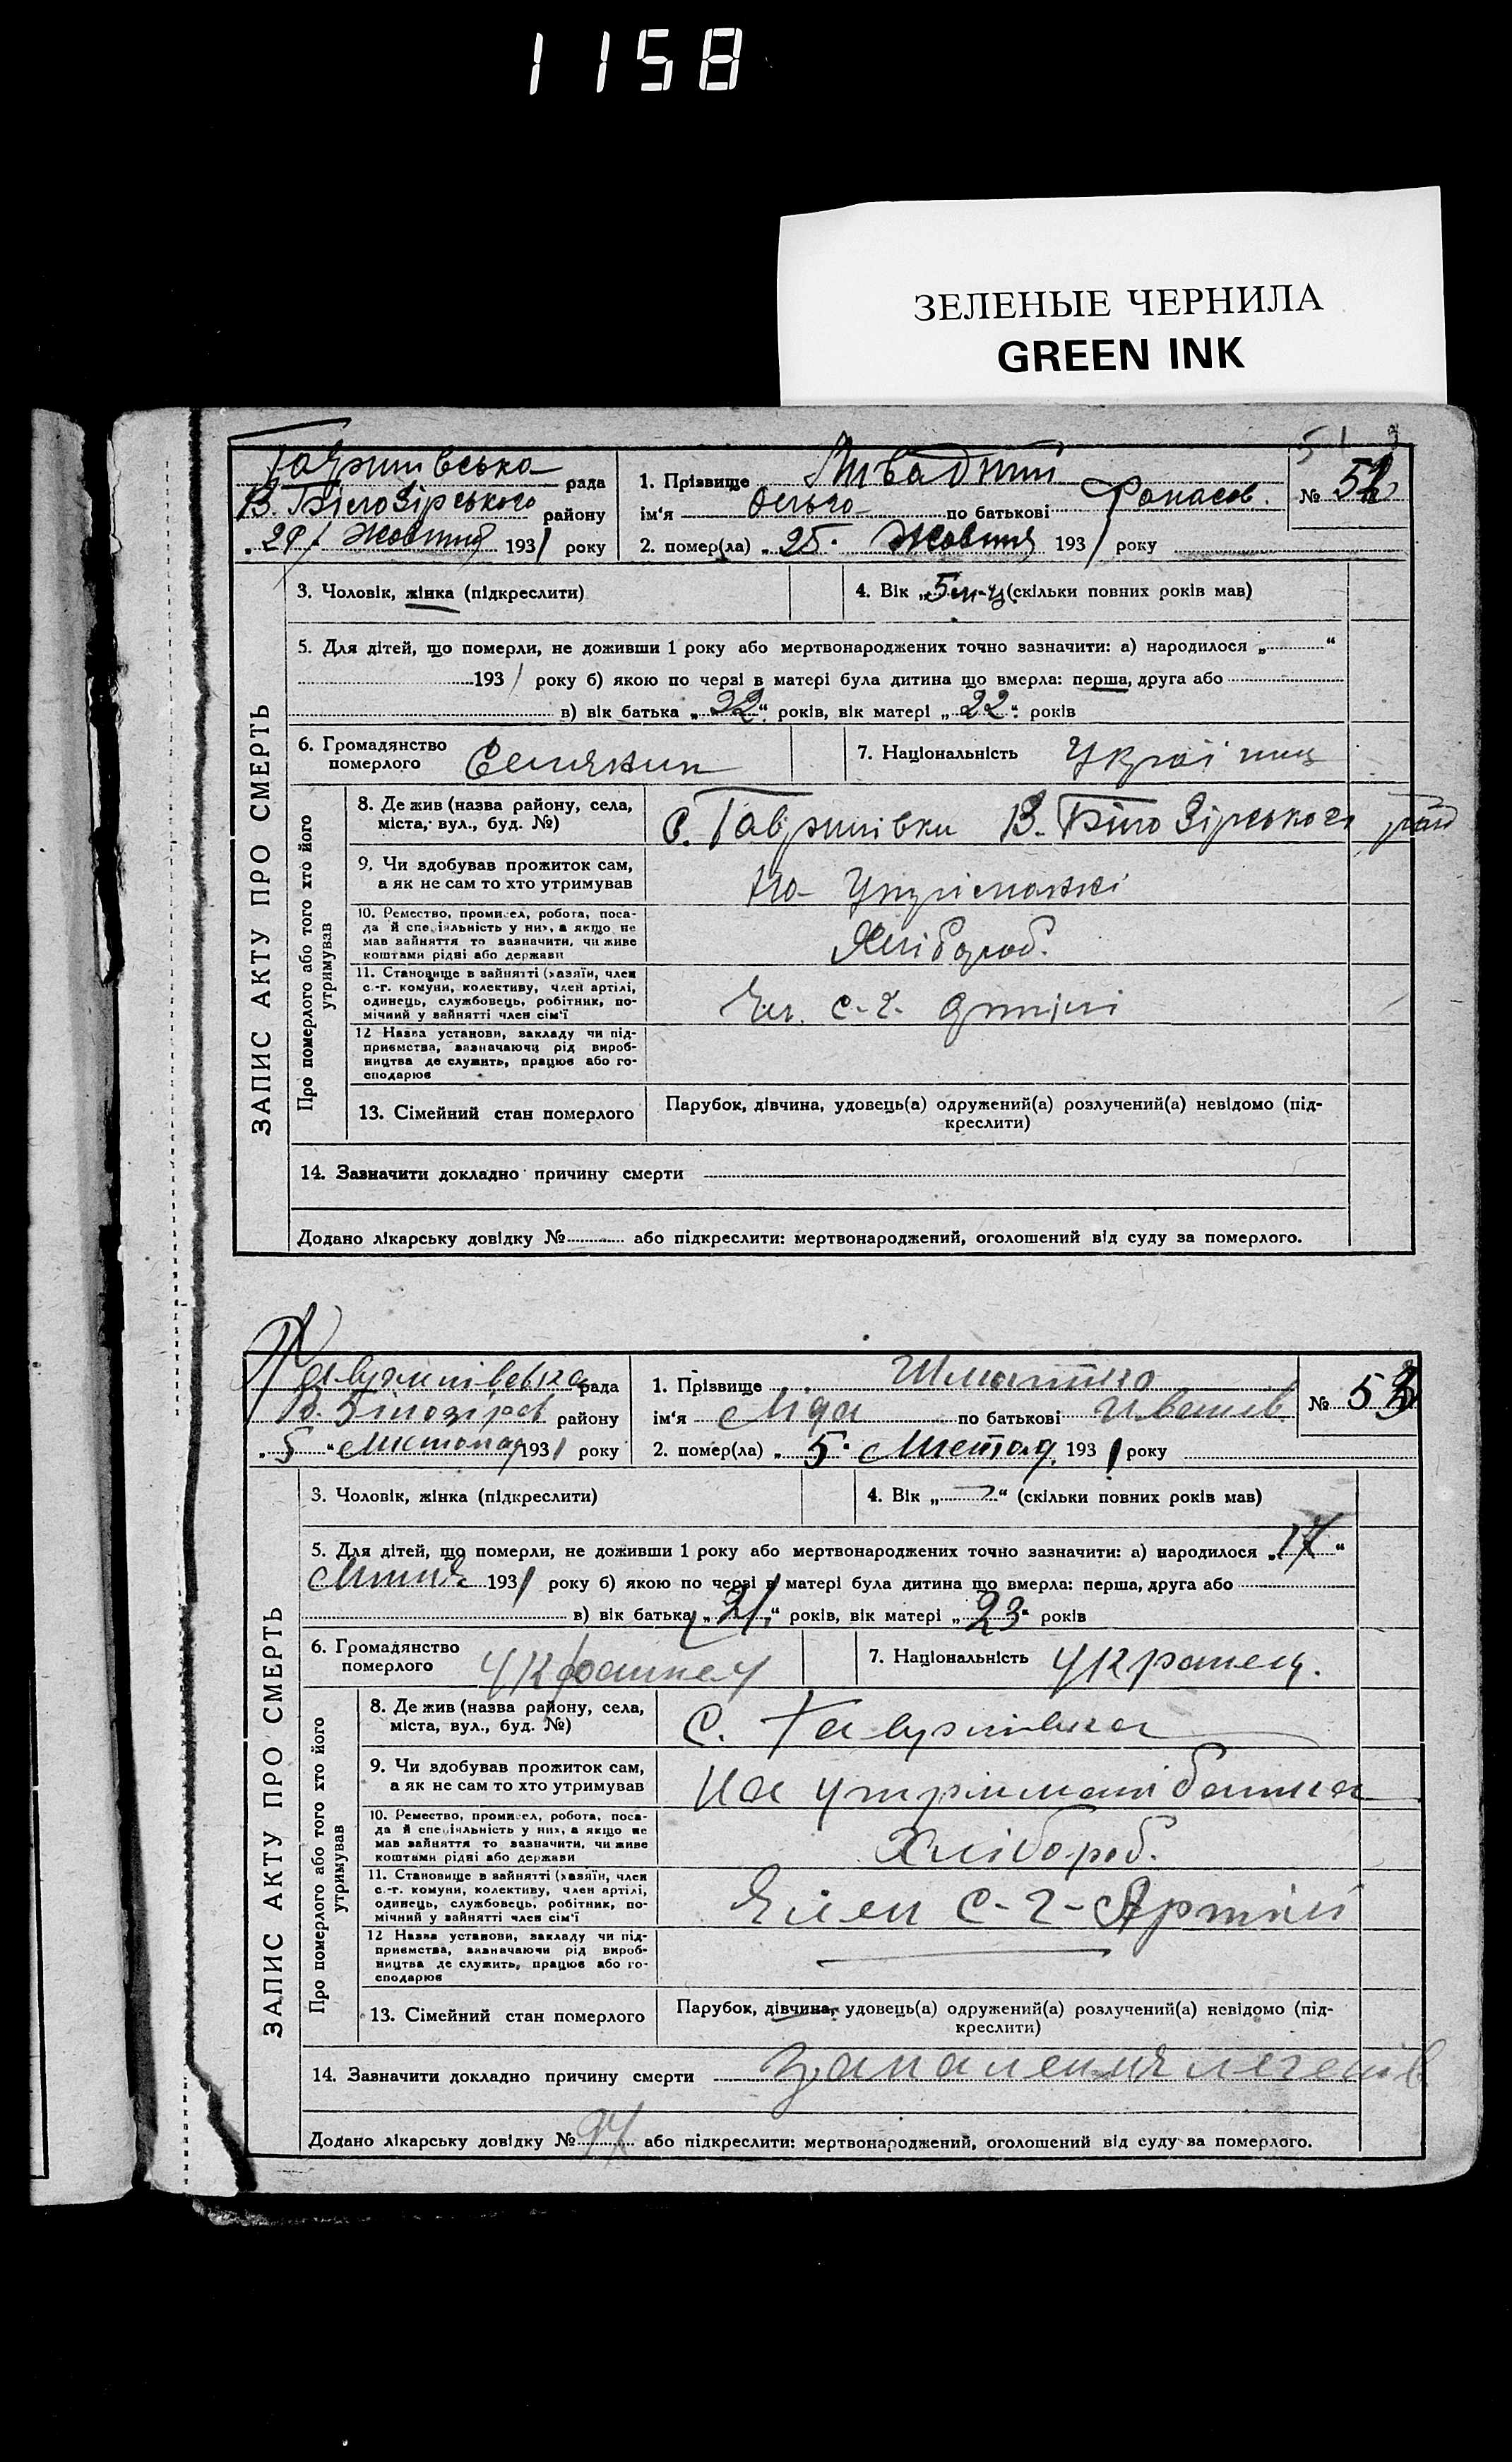 1158
ЗЕЛЕНЫЕ ЧЕРНИЛА
GREEN INK
рада
В. Білозірського району
Жовтня 1931 року
1. Прізвище
ім'я Ольга по батькові Фанасов.
2. помер(ла) „25" Жовтня 1931 року
№ 52
ЗАПИС АКТУ ПРО СМЕРТЬ
3. Чоловік, жінка (підкреслити)
4. Вік „5 м-ц (скільки повних років мав)
5. Для дітей, що померли, не доживши 1 року або мертвонароджених точно зазначити: а) народилося „ “
1931 року б) якою по черзі в матері була дитина що вмерла: перша, друга або
в) вік батька „22“ років, вік матері „22“ років
6. Громадянство
померлого Селянин
7. Національність
Про померлого або того хто його
утримував
8. Де жив (назва району, села,
міста, вул., буд. №)
С. Гавришівки В. Білозірського рай
9. Чи здобував прожиток сам,
а як не сам то хто утримував
На
10. Ремество, промисел, робота, поса-
да й спеціяльність у них, а якщо не
мав зайняття то зазначити, чи живе
коштами рідні або держави
Хлібороб.
11. Становище в зайнятті (хазяїн, член
с.-г. комуни, колективу, член артілі,
одинець, службовець, робітник, по-
мічний у зайнятті член сім'ї
Чл. с-г. артілі
12 Назва установи, закладу чи під-
приємства, зазначаючи рід вироб-
ництва де служить, працює або го-
сподарює
13. Сімейний стан померлого
Парубок, дівчина, удовець(а) одружений(а) розлучений(а) невідомо (під-
креслити)
14. Зазначити докладно причину смерти
Додано лікарську довідку № або підкреслити: мертвонароджений, оголошений від суду за померлого.
рада
В. Білозірськ району
„5“ Листопад 1931 року
1. Прізвище Шматько
ім'я Ліда по батькові Иванів
2. помер(ла) „5" Листопад. 1931 року
№ 53
ЗАПИС АКТУ ПРО СМЕРТЬ
3. Чоловік, жінка (підкреслити)
4. Вік „ “ (скільки повних років мав)
5. Для дітей, що померли, не доживши 1 року або мертвонароджених точно зазначити: а) народилося „17“
1931 року б) якою по черзі в матері була дитина що вмерла: перша, друга або
в) вік батька „21“ років, вік матері „23“ років
6. Громадянство
померлого
7. Національність Укранец.
Про померлого або того хто його
утримував
8. Де жив (назва району, села,
міста, вул., буд. №)
С. Гавришівка
9. Чи здобував прожиток сам,
а як не сам то хто утримував
На утрімані батька
10. Ремество, промисел, робота, поса-
да й спеціяльність у них, а якщо не
мав зайняття то зазначити, чи живе
коштами рідні або держави
Хлібороб.
11. Становище в зайнятті (хазяїн, член
с.-г. комуни, колективу, член артілі,
одинець, службовець, робітник, по-
мічний у зайнятті член сім'ї
Член С-г-Артілі
12 Назва установи, закладу чи під-
приємства, зазначаючи рід вироб-
ництва де служить, працює або го-
сподарює
13. Сімейний стан померлого
Парубок, дівчина, удовець(а) одружений(а) розлучений(а) невідомо (під-
креслити)
14. Зазначити докладно причину смерти Запалення легенів
Додано лікарську довідку № 97 або підкреслити: мертвонароджений, оголошений від суду за померлого.